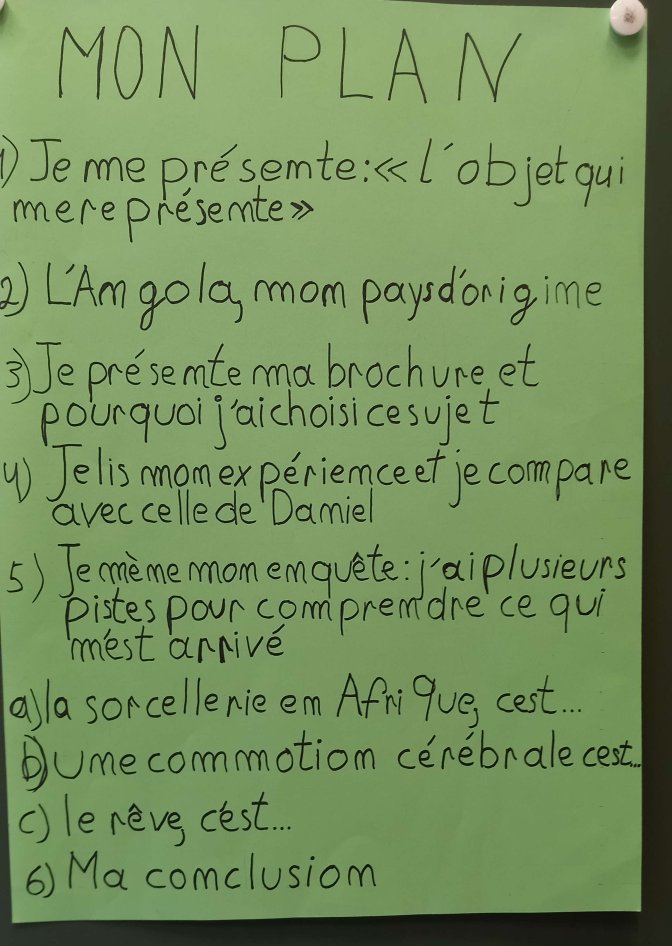 MON PLAN
1) Je me présente: « l'objet qui
me représente »
2) L'Angola, mon pays d'origine
3) Je présente ma brochure et
pourquoi j'ai choisi ce sujet
4) Je lis mon expérience et je compare
avec celle de Daniel
5) Je mème mon enquête: j'ai plusieurs
pistes pour comprendre ce qui
m'est arrivé
a) la sorcellerie en Afrique, c'est...
b) une commotion cérébrale c'est...
c) le rêve, c'est...
6) Ma conclusion